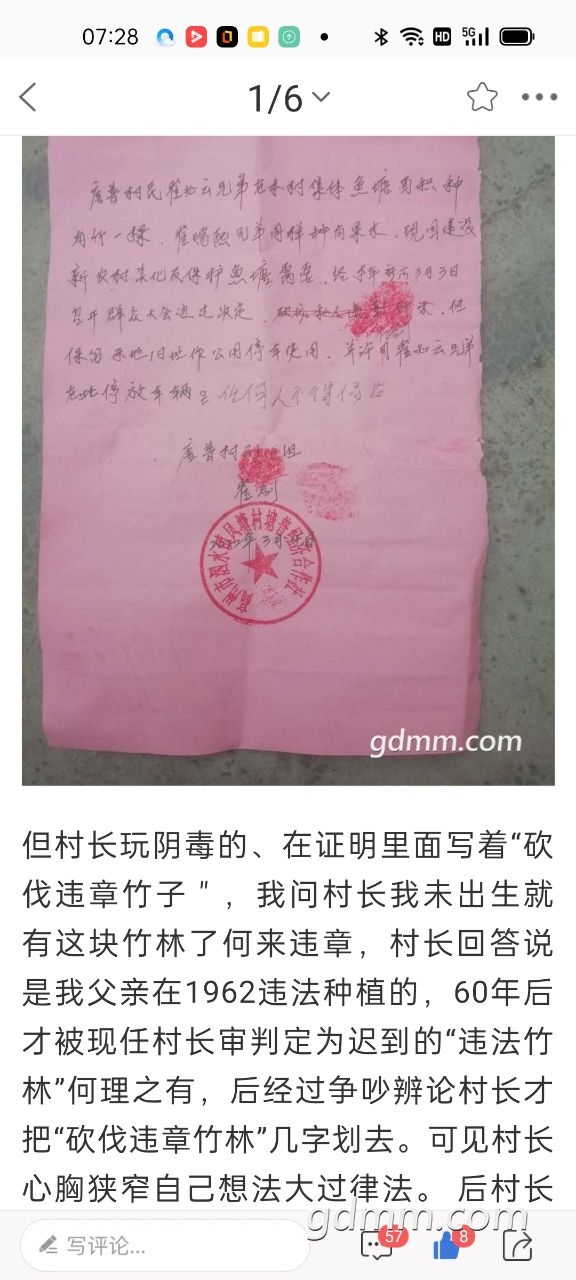 07:28
HD 5G
1/6
唐普村民崔兆云兄弟在本村集体鱼塘面积种
有竹一棵，崔瑞熙兄弟同样种有果木，现因建设
新农村美化及保护鱼塘需要，经 年 月3月3日
召开群众大会通过决定，但
保留原地旧址作公用停车使用，并许可崔兆云兄弟
在此停放车辆，任何人不得侵占
唐普村
崔剑
3月
gdmm.com
但村长玩阴毒的、在证明里面写着“砍
伐违章竹子＂，我问村长我未出生就
有这块竹林了何来违章，村长回答说
是我父亲在1962违法种植的，60年后
才被现任村长审判定为迟到的“违法竹
林”何理之有，后经过争吵辨论村长才
把“砍伐违章竹林”几字划去。可见村长
心胸狭窄自己想法大过律法。 后村长
gdmm.com
写评论...
57
8